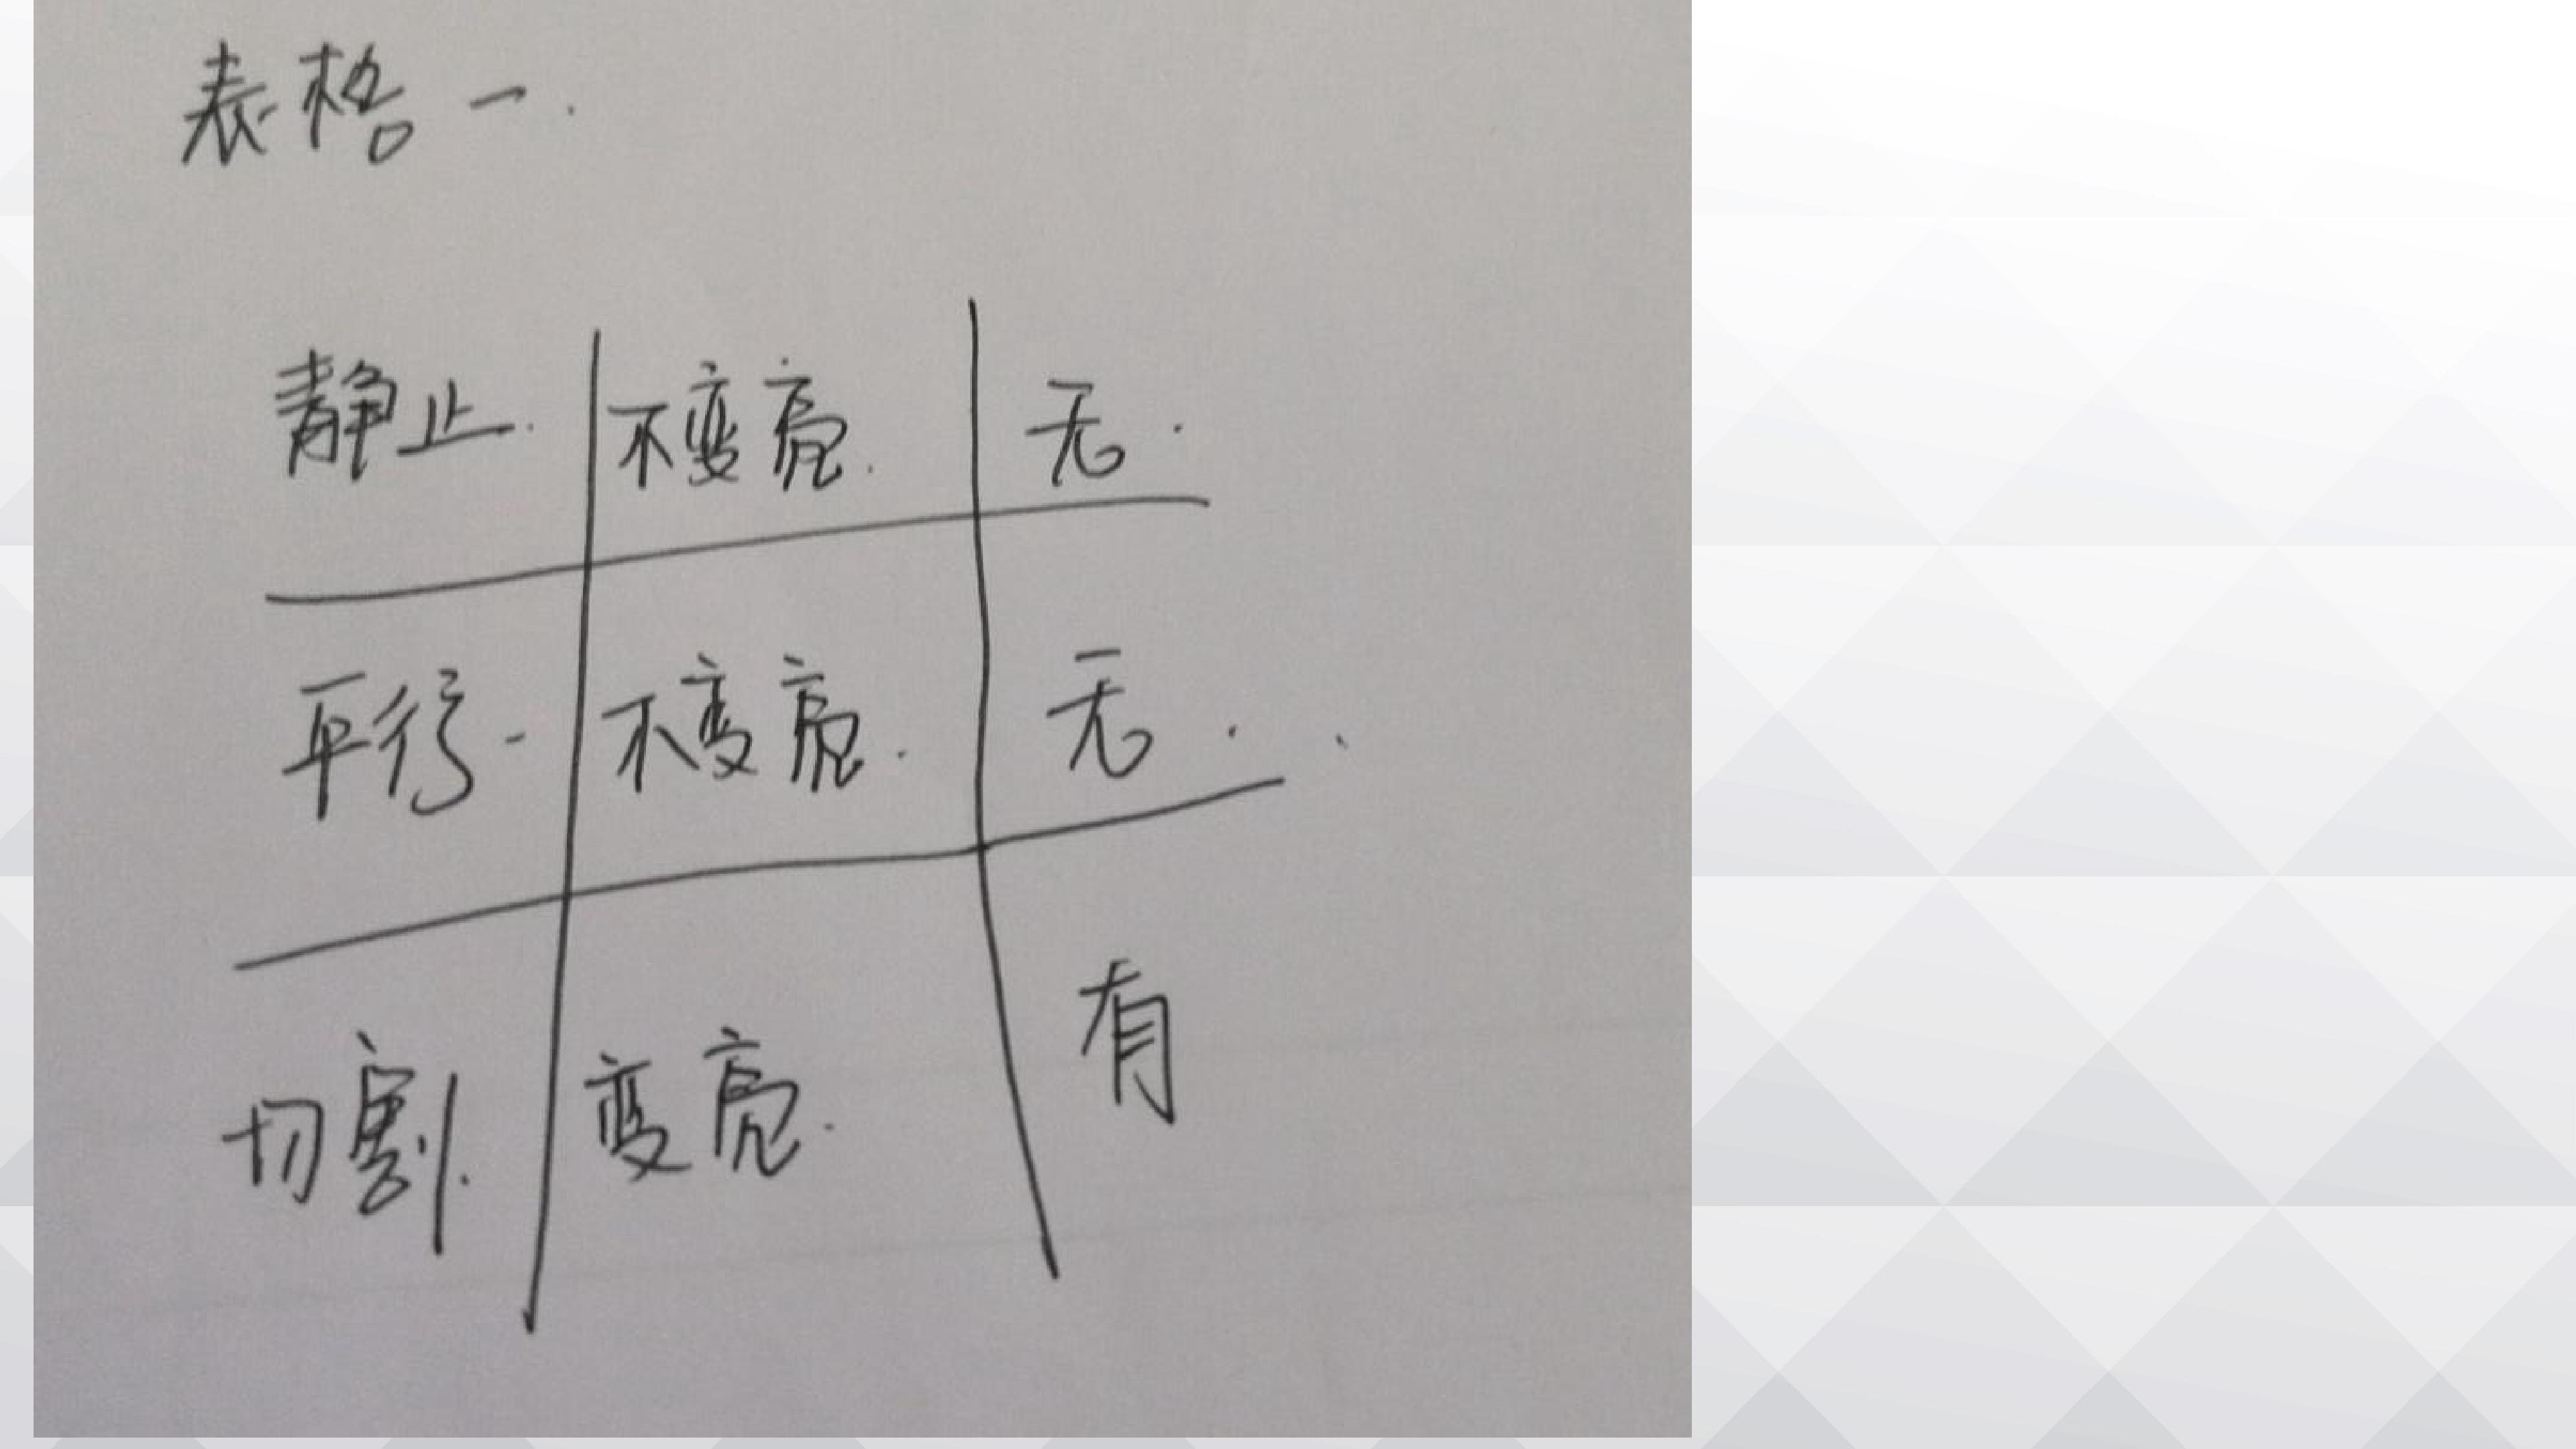 表格一.
静止. 不变亮. 无.
平行. 不变亮. 无.
切割. 变亮. 有